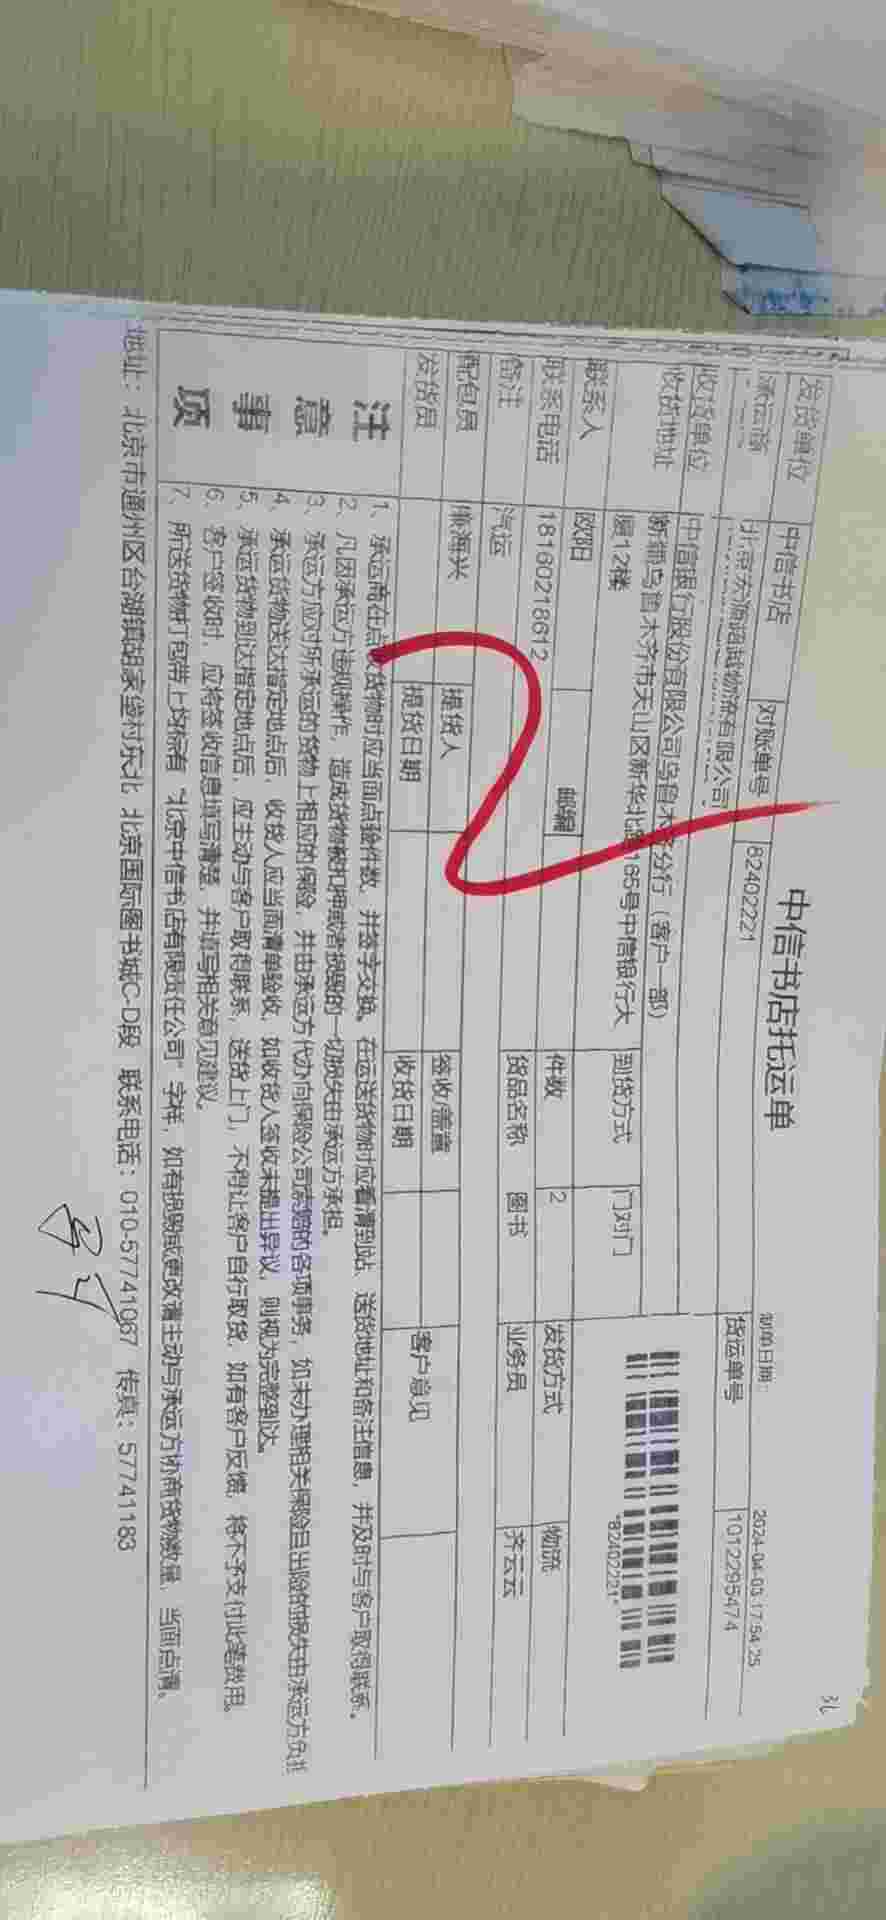 中信书店托运单
制单日期: 2024-04-03 17:54:25
发货单位 中信书店 对账单号 82402221 货运单号 1012295474
承运商 物流有限公司
收货单位 中信银行股份有限公司乌鲁木齐分行（客户一部）
收货地址 新疆乌鲁木齐市天山区新华北路165号中信银行大厦12楼 到货方式 门对门
*82402221*
联系人 欧阳 邮编
联系电话 18160218612 件数 2 发货方式 物流
备注 汽运 货品名称 图书 业务员 齐云云
配包员 海兴 提货人 签收/盖章 客户意见
发货员 提货日期 收货日期
注意事项
1、承运商在点收货物时应当面点验件数，并签字交换。在运送货物时应看清到站、送货地址和备注信息，并及时与客户取得联系。
2、凡因承运方违规操作，造成货物被扣押或者损毁的一切损失由承运方承担。
3、承运方应对所承运的货物上相应的保险，并由承运方代办向保险公司索赔的各项事务，如未办理相关保险且出险的损失由承运方负担
4、承运货物送达指定地点后，收货人应当面清单验收，如收货人签收未提出异议，则视为完整到达。
5、承运货物到达指定地点后，应主动与客户取得联系，送货上门，不得让客户自行取货，如有客户反馈，将不予支付此笔费用。
6、客户签收时，应将签收信息填写清楚，并填写相关意见建议。
7、所送货物打包带上均标有“北京中信书店有限责任公司”字样，如有损毁或更改请主动与承运方协商货物数量，当面点清。
地址：北京市通州区台湖镇胡家垡村东北 北京国际图书城C-D段 联系电话：010-57741067 传真：57741183